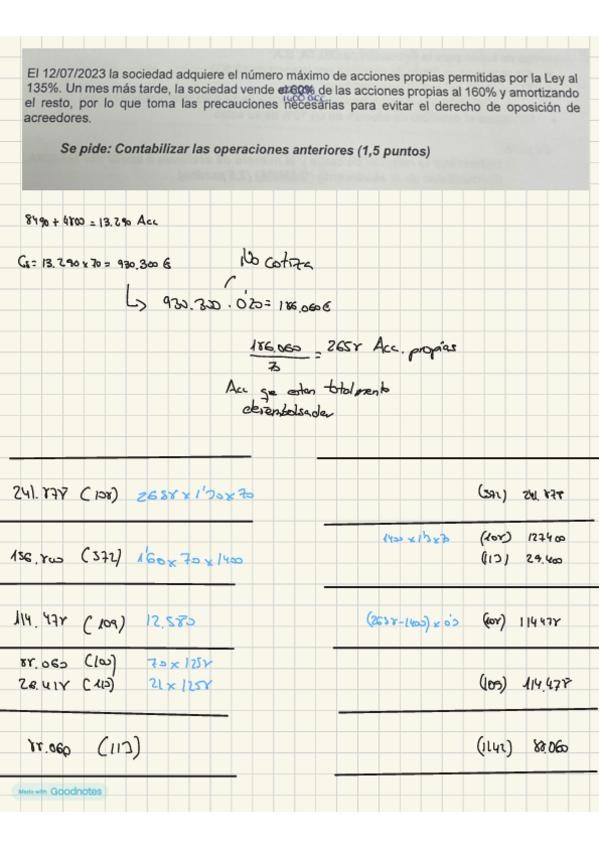 El 12/07/2023 la sociedad adquiere el número máximo de acciones propias permitidas por la Ley al
135%. Un mes más tarde, la sociedad vende el 60% de las acciones propias al 160% y amortizando
1400 acc
el resto, por lo que toma las precauciones necesarias para evitar el derecho de oposición de
acreedores.
Se pide: Contabilizar las operaciones anteriores (1,5 puntos)
8490 + 4800 = 13.290 Acc
Cs = 13.290 x 70 = 930.300 €
No cotiza
930.300 . 0'20 = 186.060 €
186.060 / 70 = 2658 Acc. propias
Acc que estan totalmente
desembolsadas
241.878 (108) 2658 x 1'30 x 70
(572) 241.878
156.800 (572) 1'60 x 70 x 1400
1400 x 1'3 x 70 (108) 127400
(113) 29.400
114.478 (109) 12.580
(108) 114478
88.060 (100) 70 x 1258
26.418 (113) 21 x 1258
(109) 114.478
88.060 (113)
(1142) 88.060
Made with Goodnotes